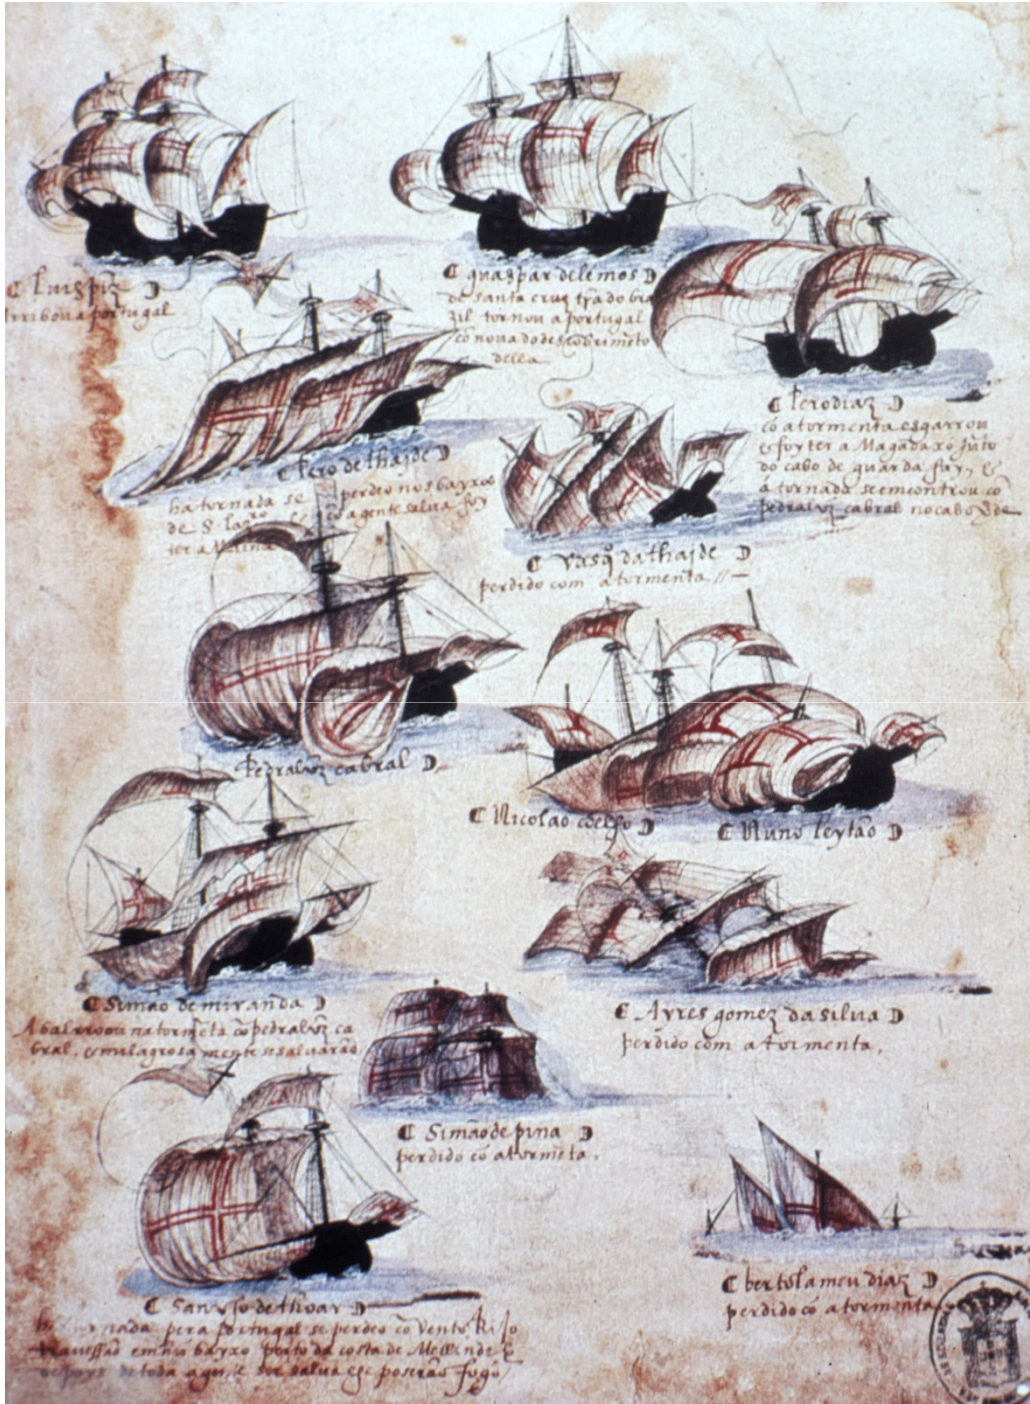 Luis piz
Arribou a portugal
guaspar de lemos
de santa cruz
zil tornou a portugal
cō nova do descobrimēto
della
Pero diaz
cō a tormenta esgarrou
e foy ter a Magadaxo jūto
do cabo de guardafuy, e
á tornada se emcontrou cō
pedralvz cabral no cabo Vde
Pero de thaide
ha tornada se perdeo nos bayxos
de S. Lazro cō a gente salva foy
ter a
vasq̃ da thaide
perdido com a tormenta
Pedralvz cabral
Nicolao coelho
Nuno leytão
Simão de miranda
Abalrroou na tormēta cō pedralvz ca
bral, e milagrosamente se salvarão
Ayres gomez da silva
perdido com a tormenta,
Simão de pina
perdido cō a tormēta,
Sancho de thoar
pera portugal se perdeo cō vento Rijo
em hū bayxo perto da costa de
de toda a salva poserão fogo
bertolameu diaz
perdido cō a tormenta